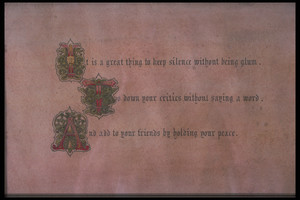 It is a great thing to keep silence without being glum.
To down your critics without saying a word,
And add to your friends by holding your peace.